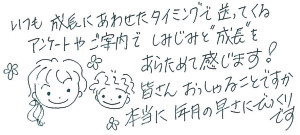 いつも 成長にあわせたタイミングで 送ってくる
アンケートや ご案内で しみじみと"成長"を
あらためて感じます!
皆さん おっしゃることですが
本当に 年月の早さにびっくり
です